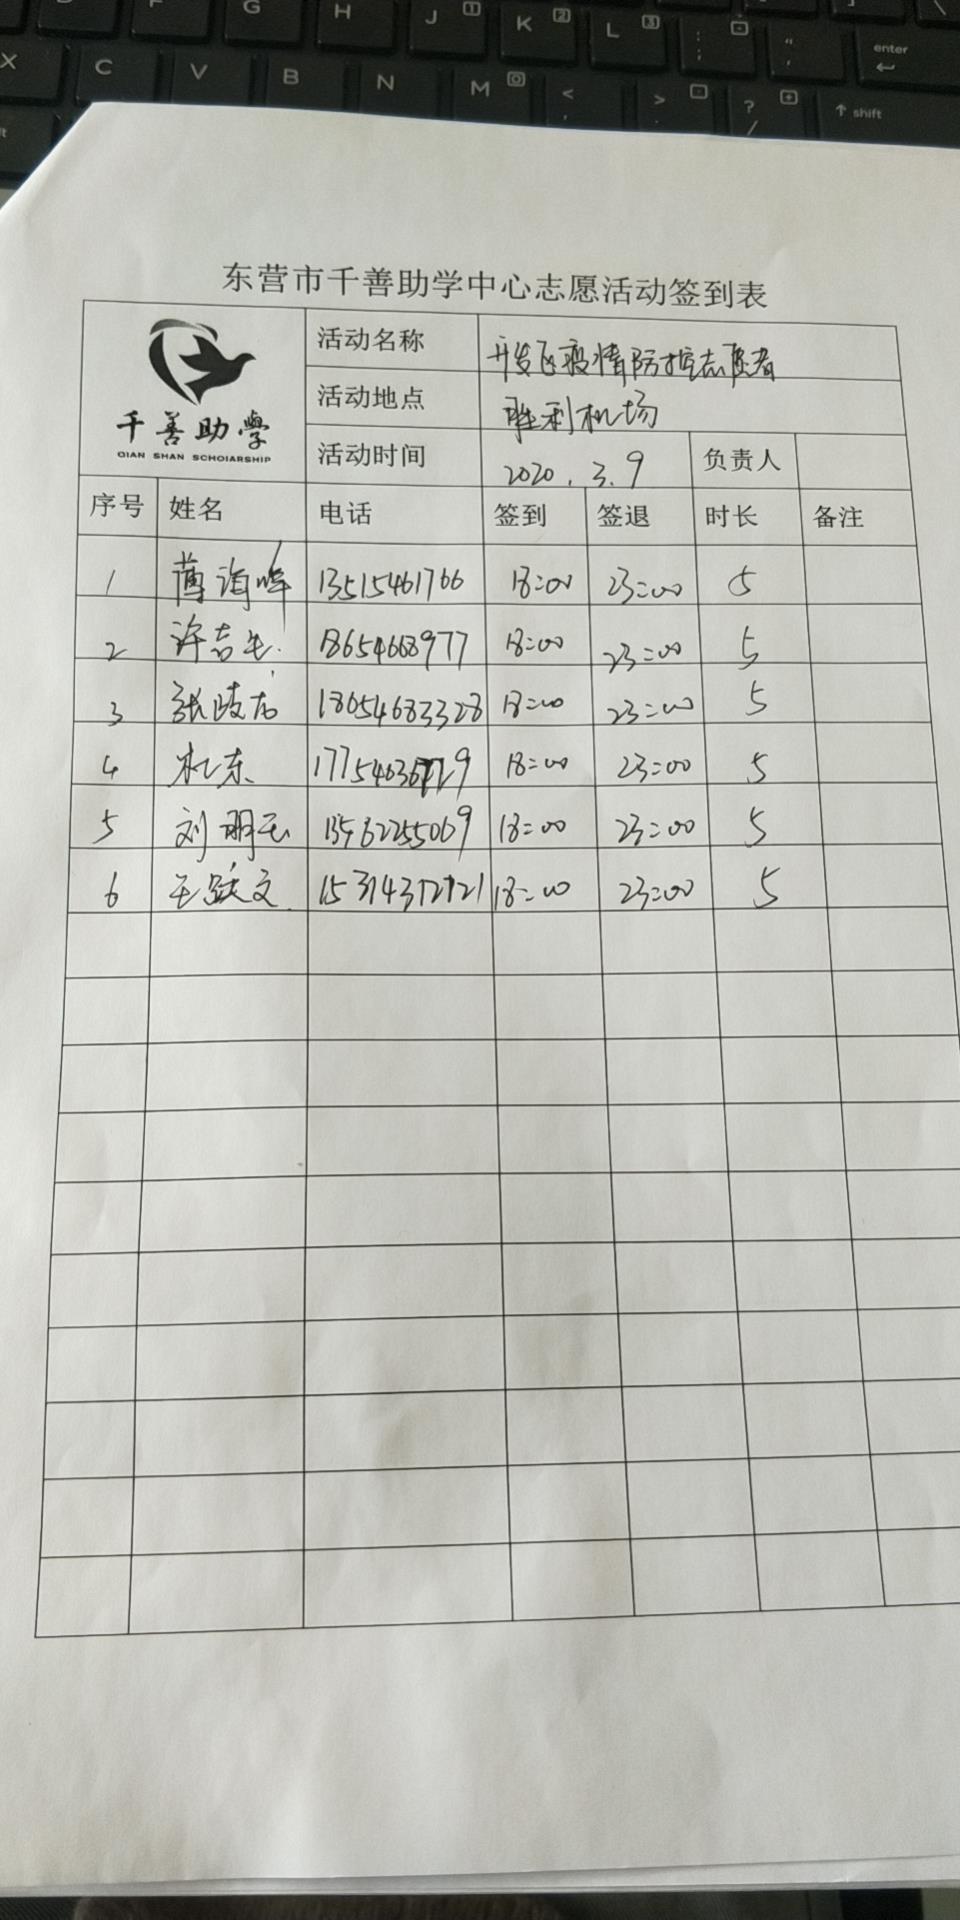 G H J 1 K 2 L 3 : ; " ' enter
X C V B N M 0 < , > . ? / ↑ shift
东营市千善助学中心志愿活动签到表
千善助學
QIAN SHAN SCHOIARSHIP
活动名称 开发区疫情防控志愿者
活动地点 胜利机场
活动时间 2020.3.9 负责人
序号 姓名 电话 签到 签退 时长 备注
1 薄海峰 13515461766 18:00 23:00 5
2 许志 18654668977 18:00 23:00 5
3 张 18654683328 18:00 23:00 5
4 东 18:00 23:00 5
5 刘明 18:00 23:00 5
6 王跃文 18:00 23:00 5